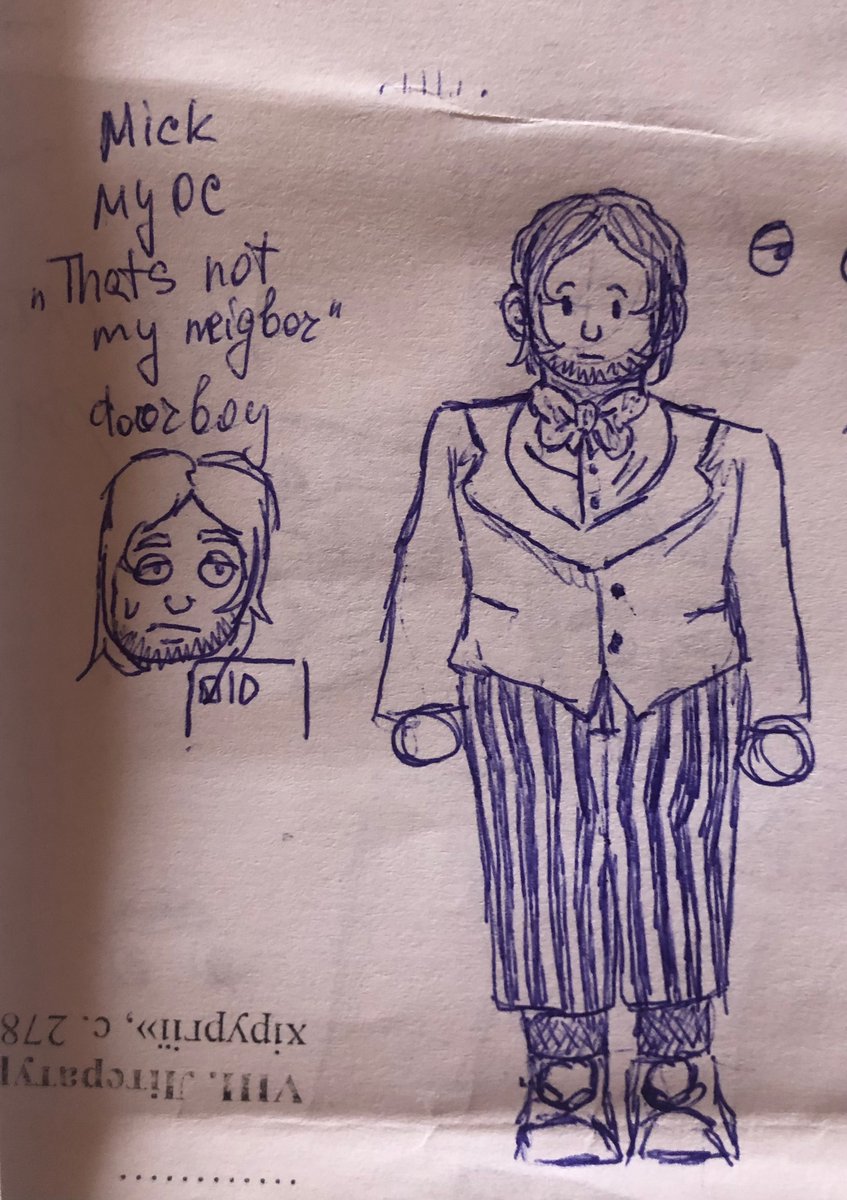 Mick
My OC
„Thats not
my neigbor"
doorboy
ID
VIII. Літерату
хірургії», с. 278